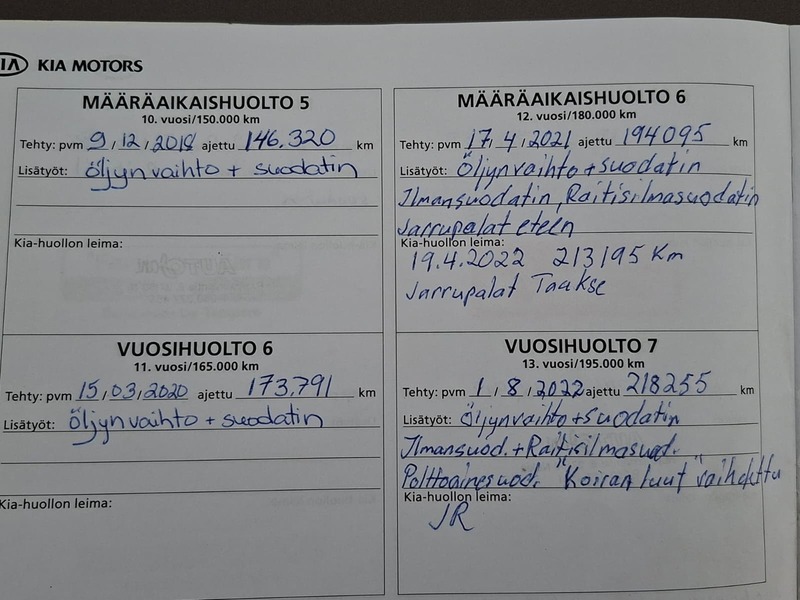 KIA KIA MOTORS
MÄÄRÄAIKAISHUOLTO 5
10. vuosi/150.000 km
Tehty: pvm 9 / 12 / 2018 ajettu 146.320 km
Lisätyöt: öljynvaihto + suodatin
Kia-huollon leima:
VUOSIHUOLTO 6
11. vuosi/165.000 km
Tehty: pvm 15 / 03 / 2020 ajettu 173.791 km
Lisätyöt: öljynvaihto + suodatin
Kia-huollon leima:
MÄÄRÄAIKAISHUOLTO 6
12. vuosi/180.000 km
Tehty: pvm 17 / 4 / 2021 ajettu 194095 km
Lisätyöt: Öljynvaihto + suodatin
Ilmansuodatin, Raitisilmasuodatin
Jarrupalat eteen
Kia-huollon leima:
19.4.2022 213195 Km
Jarrupalat Taakse
VUOSIHUOLTO 7
13. vuosi/195.000 km
Tehty: pvm 1 / 8 / 2022 ajettu 218255 km
Lisätyöt: Öljynvaihto + suodatin
Ilmansuod. + Raitisilmasuod.
Polttoainesuod. "Koiran luut" vaihdettu
Kia-huollon leima:
JR